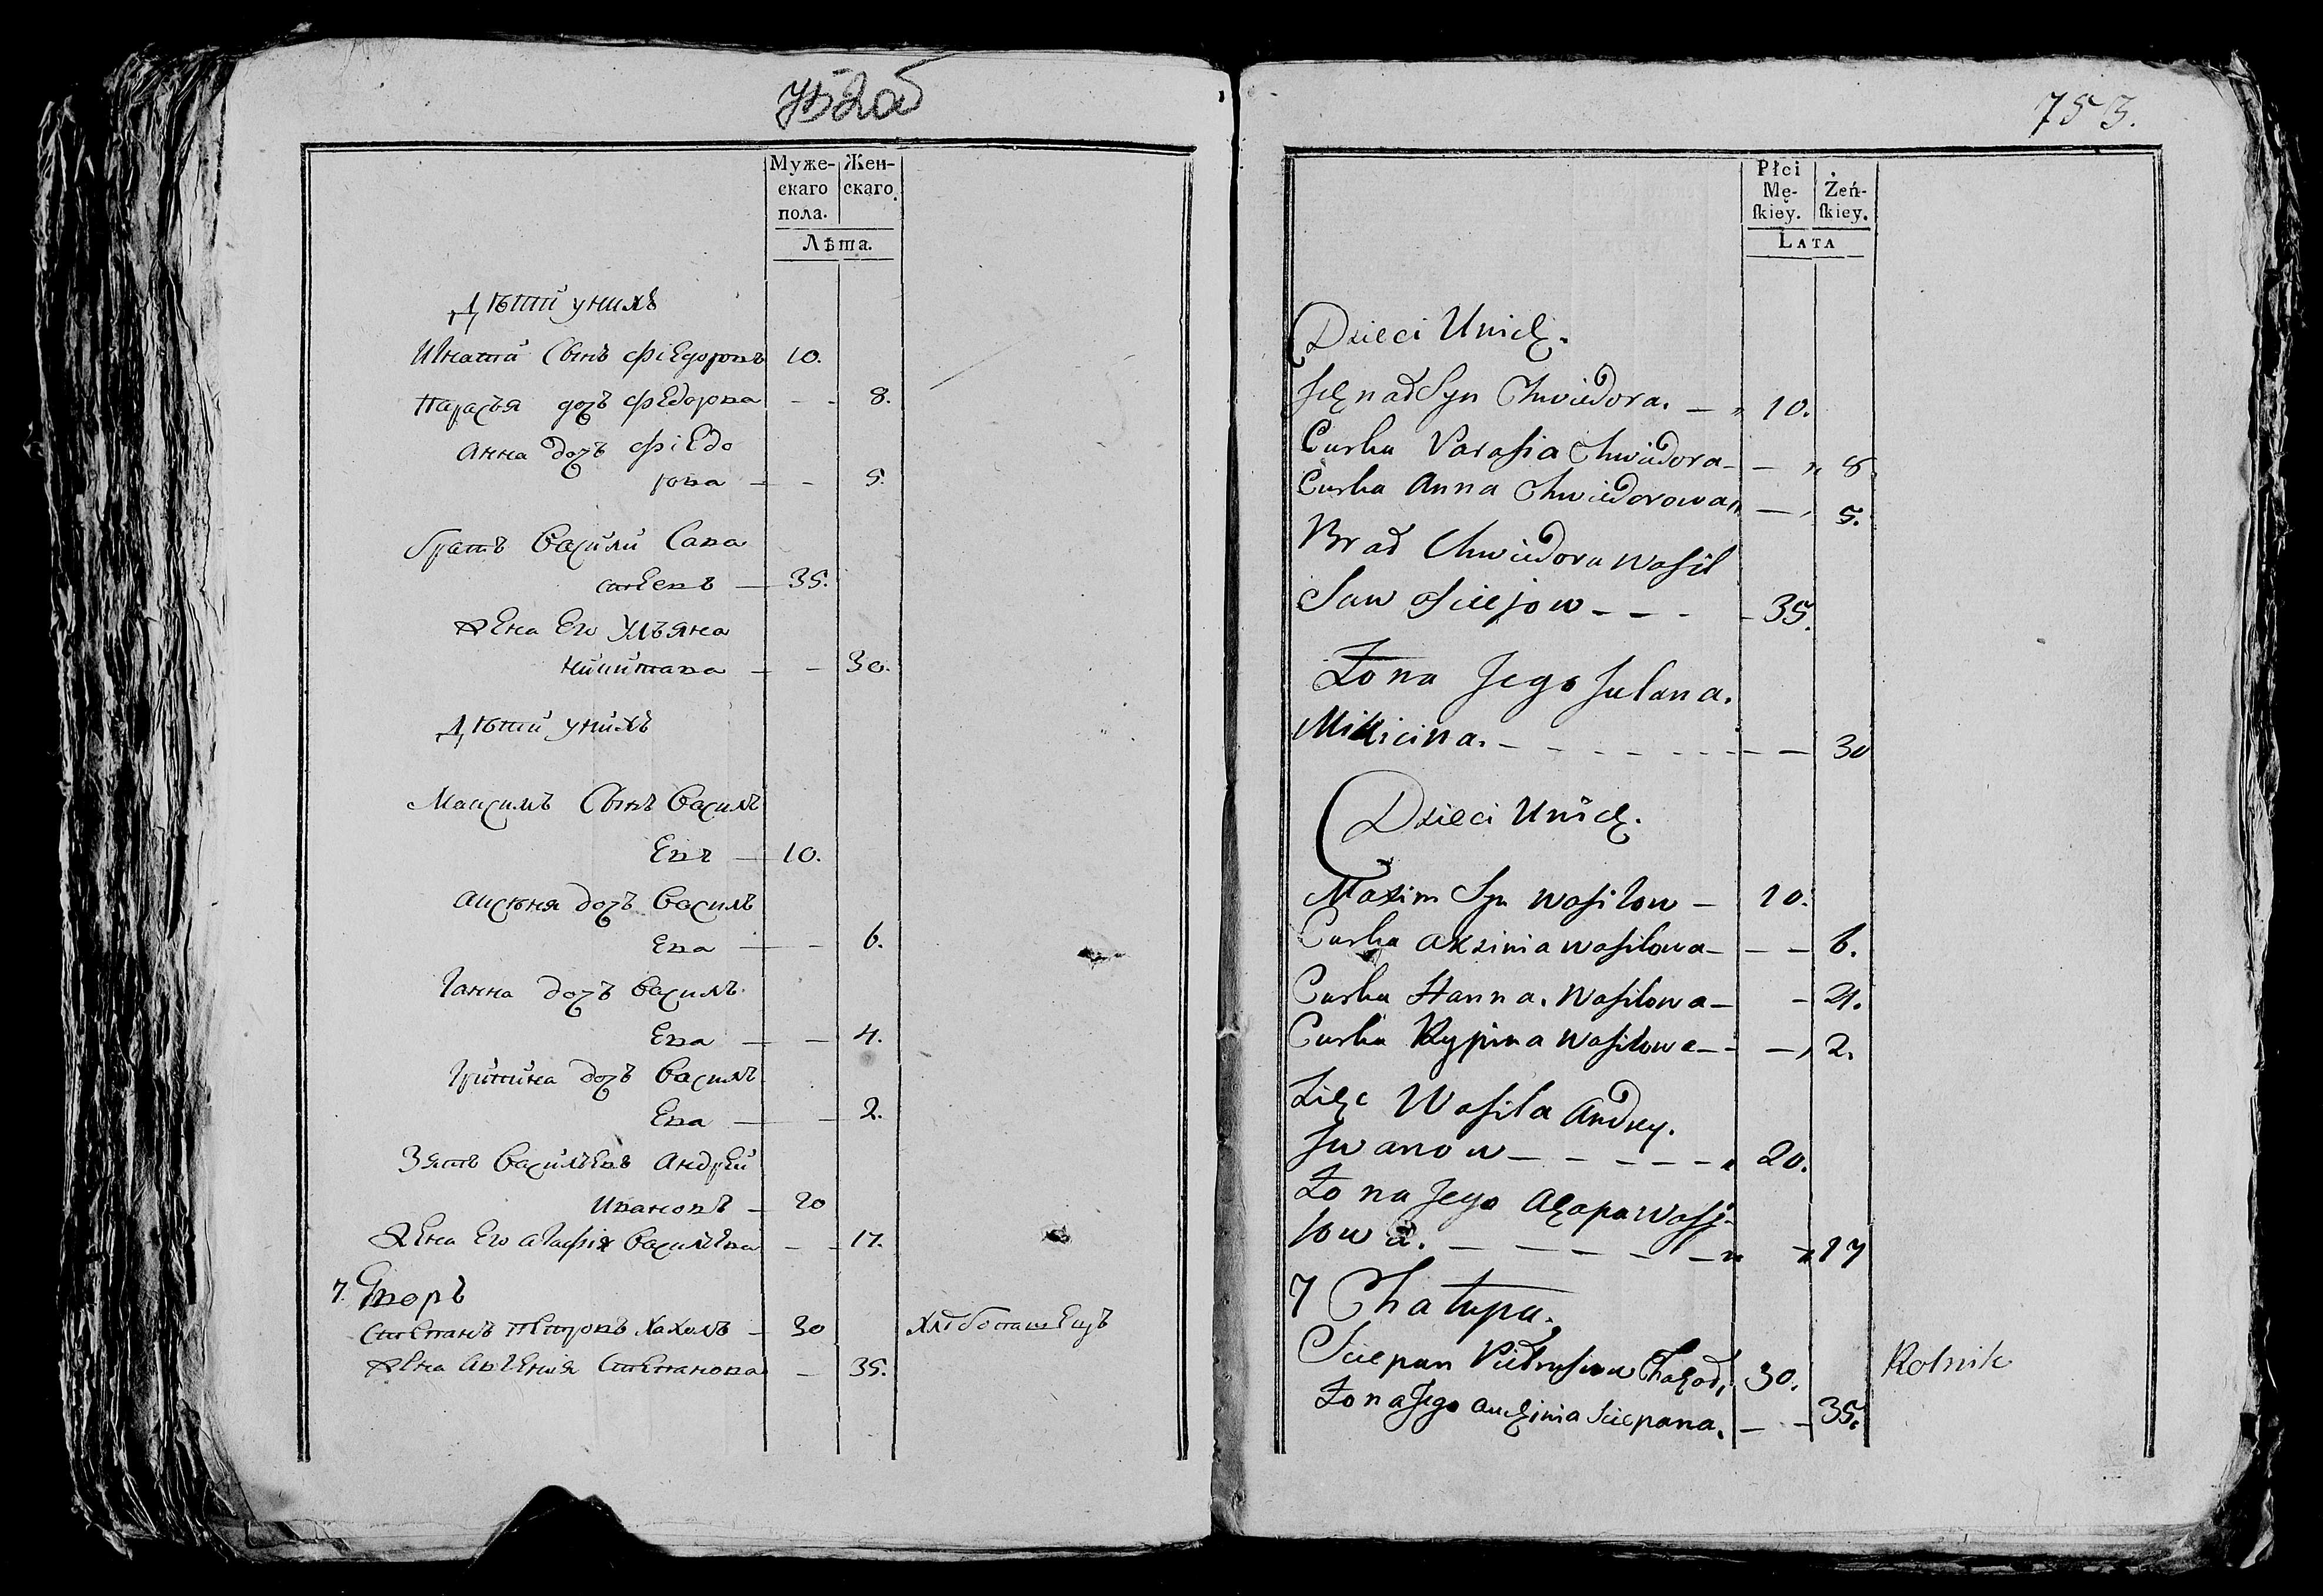 752об
Муже-
скаго
пола.
Жен-
скаго
Лѣта.
Дѣти у нихъ
Игнатій Сынъ Фіедоровъ 10.
Парасья дочь Федорова - - 8.
Анна дочь Фіедо
рова - - 5.
братъ Василій Сава
стеевъ - 35.
Жена Его Ульяна
Никитава - - 30.
Дѣти у нихъ
Максимъ Сынъ Василь
Евъ - 10.
Аксѣня дочь Василь
Ева - - 6.
Ганна дочь Василь
Ева - - 4.
Гритина дочь Василь
Ева - - 2.
Зять Васильевъ Андрей
Ивановъ - 20
Жена Его Агафія Васильева - - 17.
7. Дворъ
Степанъ Петровъ - 30 хлѣбопашецъ
Жена Авгеня Степанова - 35.
753.
Płci
Mę-
skiey.
Żeń-
skiey.
LATA
Dzieci Unich.
Syn Chwiedora. - 10.
Curka Parasia Chwiedora - - 8.
Curka Anna Chwiedorowa - 5.
Brad Chwiedora Wasil
Saw osciejow - - - - 35.
Zona Jego Julana.
Mikicina. - - - - - - - - 30
Dzieci Unich.
Maxim Syn Wasilow - 10.
Curka Axinia Wasilowa - - - 6.
Curka Hanna. Wasilowa - - 4.
Curka Wasilowa - - - 2.
Zięc Wasila Andrey.
Jwanow - - - - - 20.
Zona Jego Agapa Wasi-
lowa. - - - - - - 17
7 Chatupa.
Sciepan 30. Rolnik
Zona Jego Sciepana. - - 35.